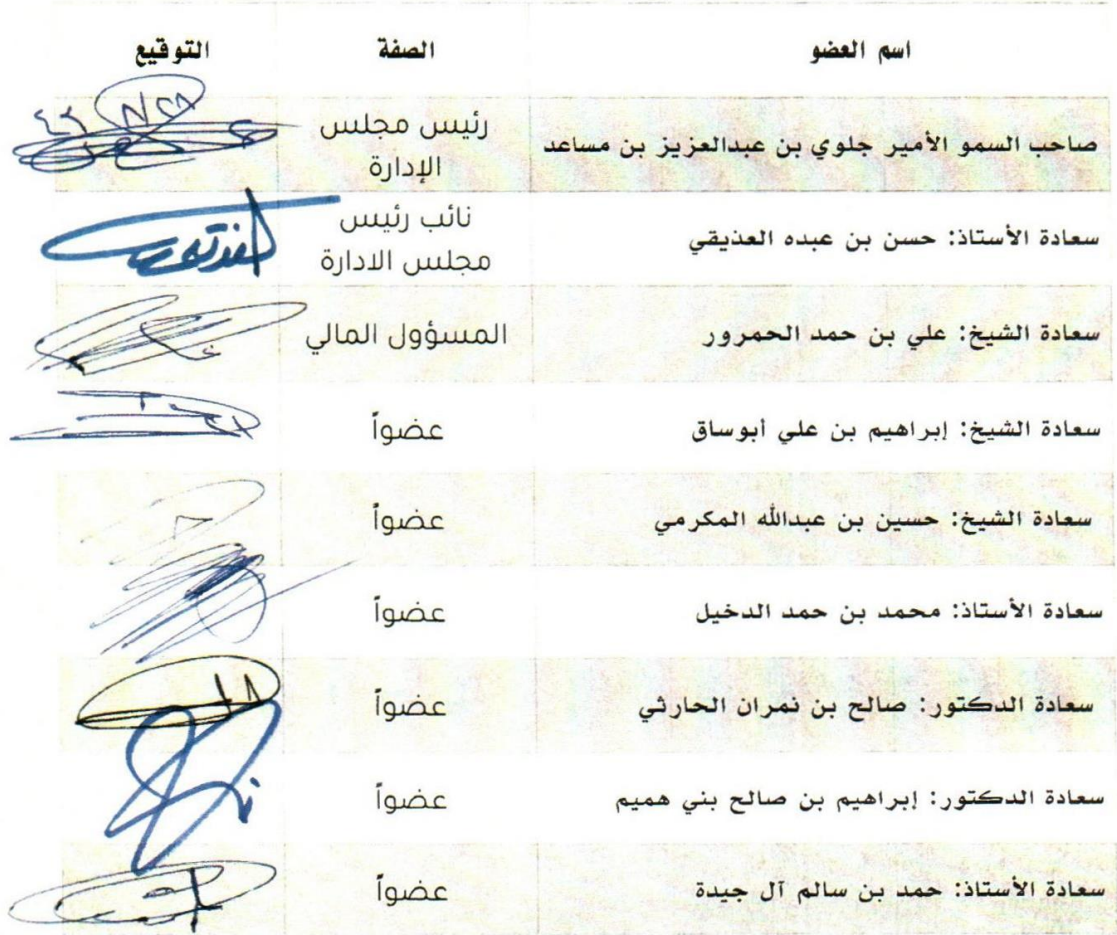 اسم العضو الصفة التوقيع
صاحب السمو الأمير جلوي بن عبدالعزيز بن مساعد رئيس مجلس
الإدارة
٤٢ ٨/٢٨
سعادة الأستاذ: حسن بن عبده العذيقي نائب رئيس
مجلس الادارة
سعادة الشيخ: علي بن حمد الحمرور المسؤول المالي
سعادة الشيخ: إبراهيم بن علي أبوساق عضواً
سعادة الشيخ: حسين بن عبدالله المكرمي عضواً
سعادة الأستاذ: محمد بن حمد الدخيل عضواً
سعادة الدكتور: صالح بن نمران الحارثي عضواً
سعادة الدكتور: إبراهيم بن صالح بني هميم عضواً
سعادة الأستاذ: حمد بن سالم آل جيدة عضواً